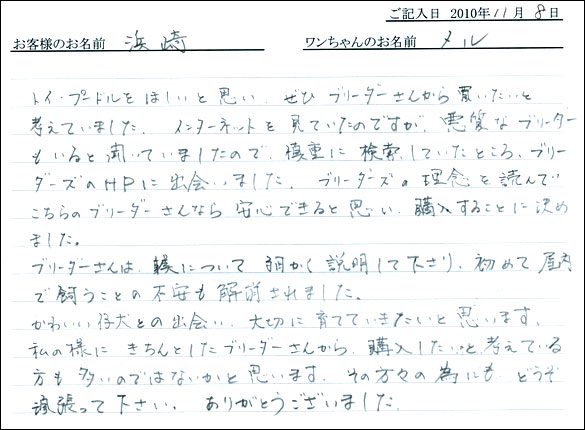 ご記入日 2010年11月8日
お客様のお名前 浜崎 ワンちゃんのお名前 メル
トイ・プードルをほしいと思い、ぜひブリーダーさんから買いたいと
考えていました。インターネットを見ていたのですが、悪質なブリーダー
もいると聞いていましたので、慎重に検索していたところ、ブリー
ダーズのHPに出会いました。ブリーダーズの理念を読んで、
こちらのブリーダーさんなら安心できると思い、購入することに決め
ました。
ブリーダーさんは、躾について細かく説明して下さり、初めて屋内
で飼うことの不安も解消されました。
かわいい仔犬との出会い、大切に育てていきたいと思います。
私の様にきちんとしたブリーダーさんから、購入したいと考えている
方も多いのではないかと思います。その方々の為にも、どうぞ
頑張って下さい。ありがとうございました。